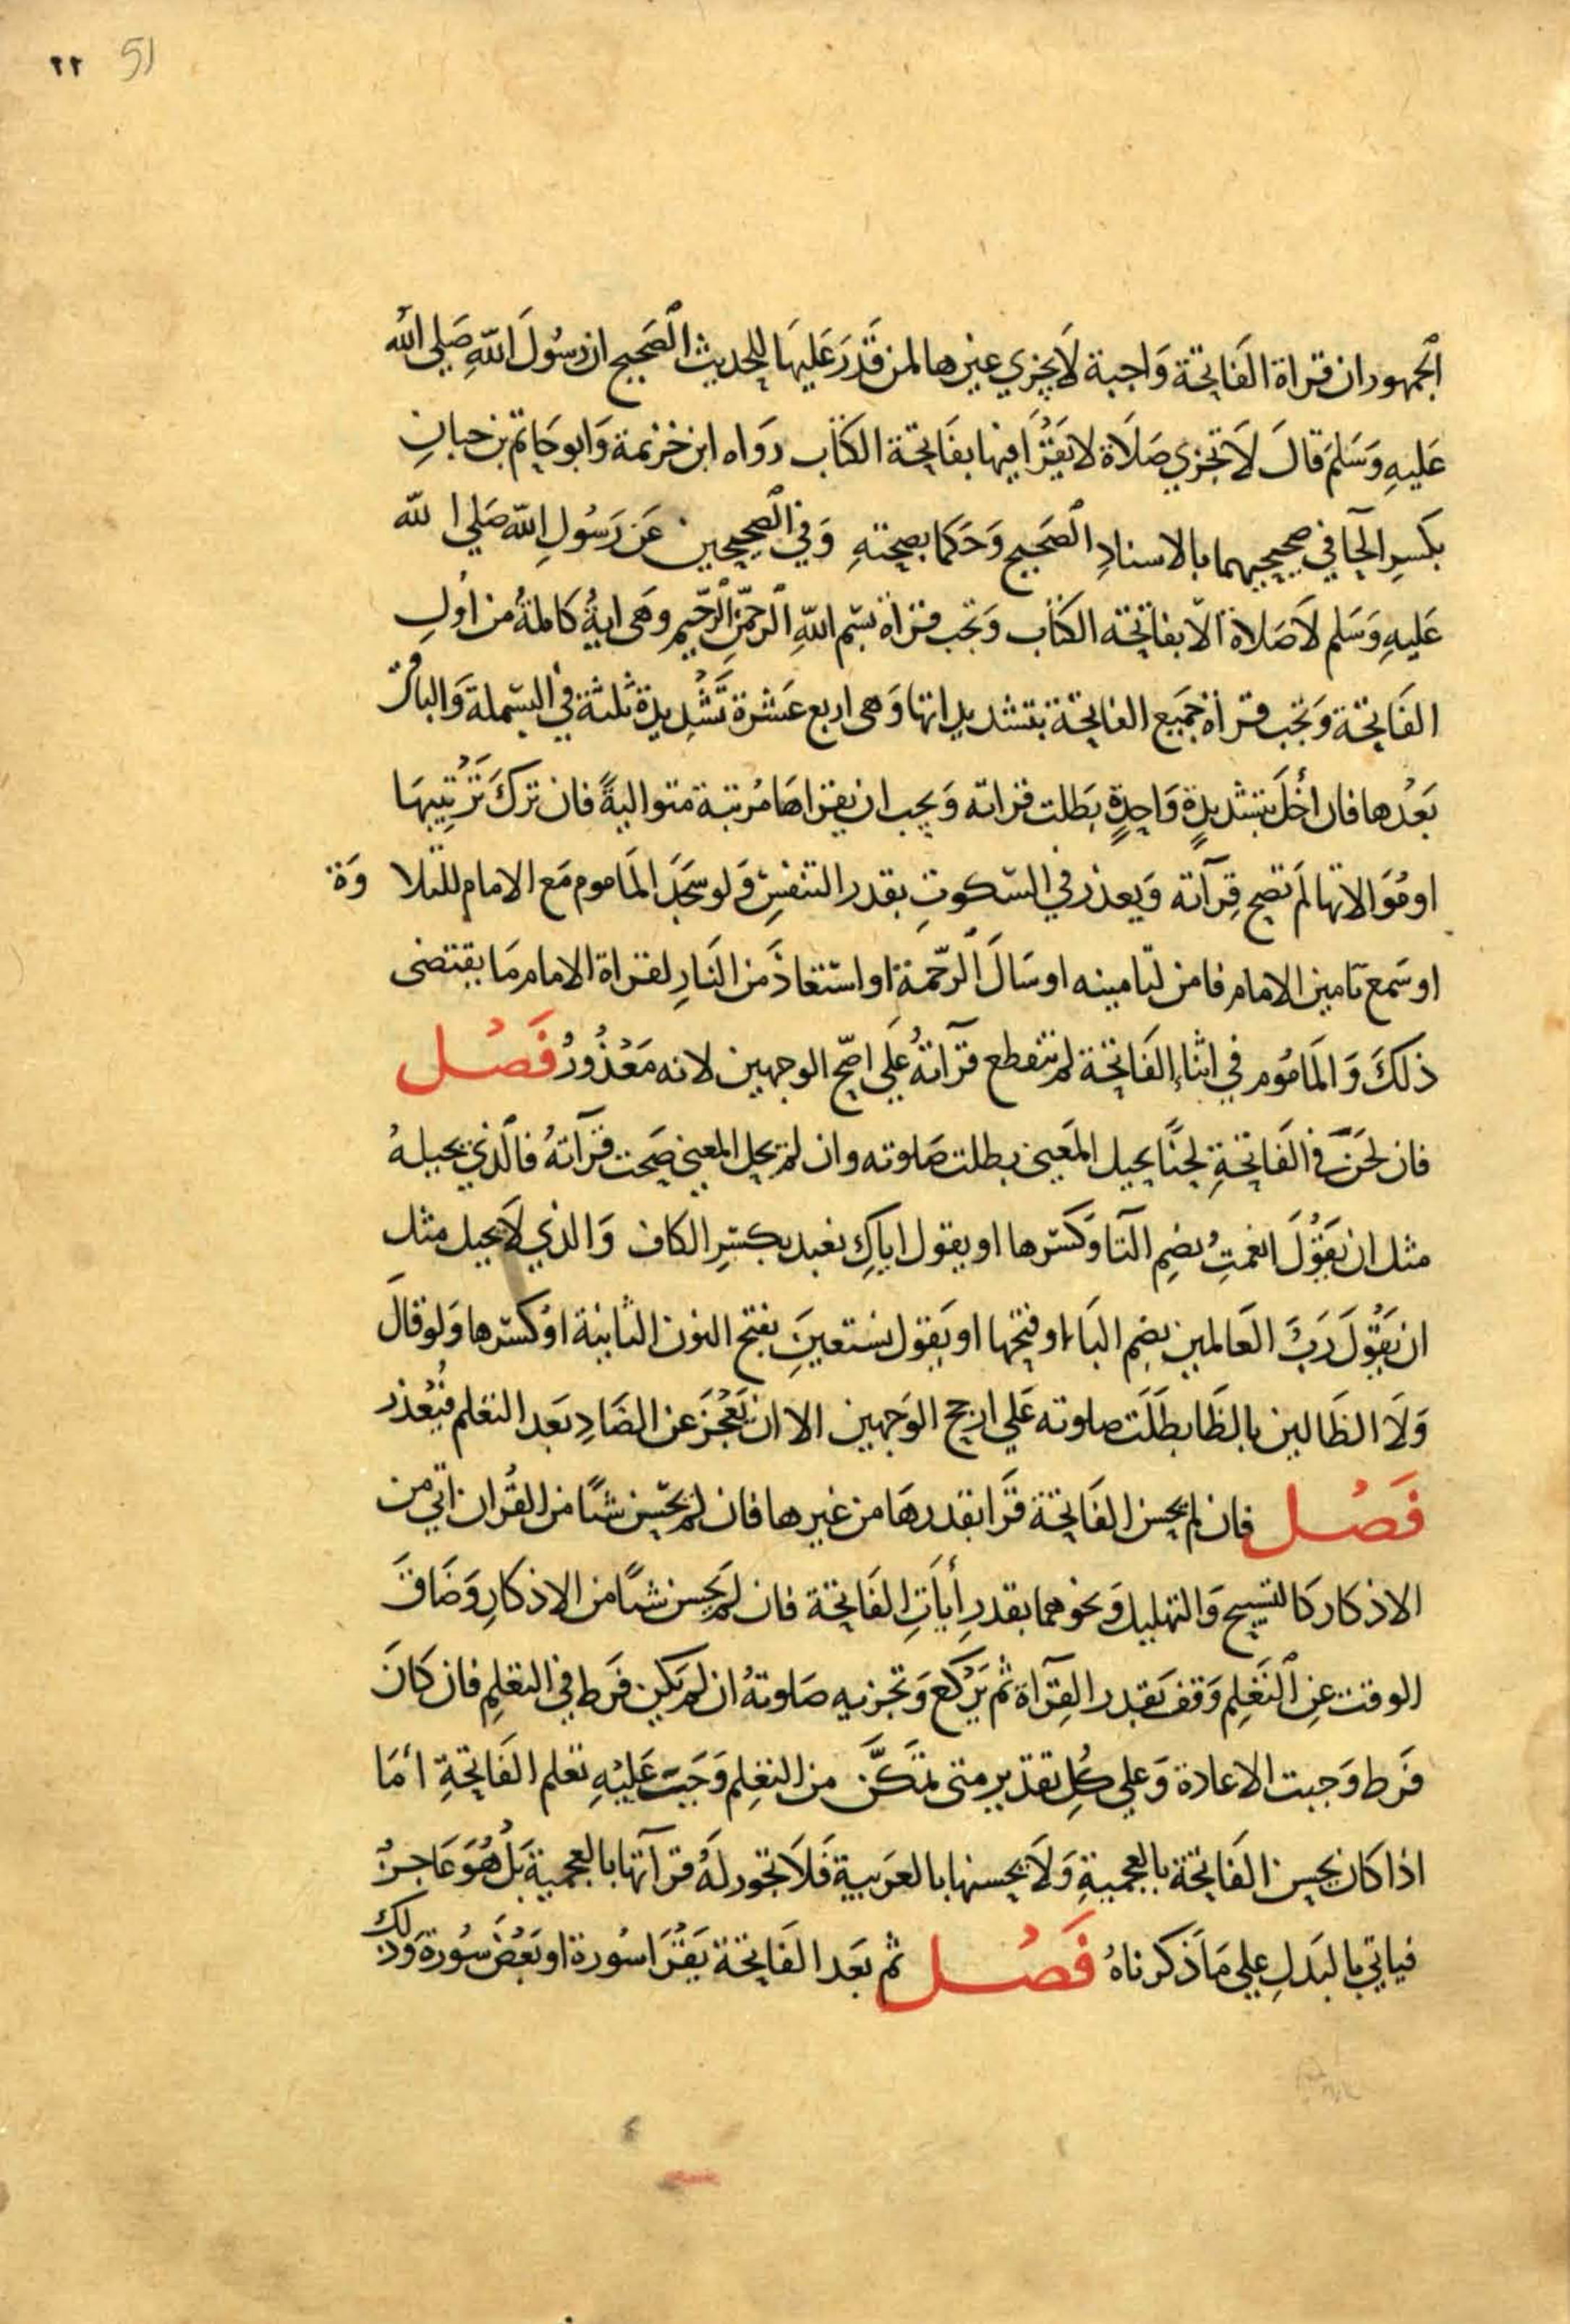 ٢٢ 51
الجمهور ان قراة الفَاتِحَة وَاجبة لَا يجزي غيرها لمن قَدَرَ عَليهَا لِلحديث الصَحِيح ان رسُولَ اللهِ صَلي الله
عَليهِ وَسَلمَ قالَ لَا تجزي صَلَاة لا يَقرَأ فيها بفَاتِحَة الكتَاب رَوَاه ابن خزيمة وَابو حَاتم بن حبانِ
بكسرِ الحَا في صحيحيهما بالاسنادِ الصَحيح وَحَكما بصحتهِ وَفي الصَحِيحين عَن رَسُولِ الله صَلي الله
عَليهِ وَسَلم لَا صَلاة الّا بفاتِحَة الكتَاب وَتجب قراة بسم اللهِ الرحمنِ الرَّحيم وهي ايةُ كاملةُ من اولِ
الفَاتِحَة وَتجب قراة جَميع الفاتِحَة بتشديداتها وَهي اربع عَشرة تَشْديدة ثلثة في البسملة وَالباقي
بَعْدها فان أخَلّ بتشديدةٍ وَاحِدةٍ بَطلت قراته وَيجب ان يقراهَا مُرتبة متواليةً فان تركَ تَرْتِيبهَا
او مُوَالاتها لم تصح قِرآته وَيعذر في السّكوتِ بقدر التنفسِ وَلو سجَدَ المَاموم مَع الامام للتلا وَة
او سَمع تَامين الامام فامن لتامينه او سَالَ الرّحمة او استعَاذَ من النَارِ لقراة الامام مَا يقتضى
ذلكَ وَالمَامُوم في اثنا الفَاتِحَة لم تنقطع قرآتهُ عَلي اصح الوجهين لانه مَعْذُورُ فَصْل
فان لحَنَ في الفَاتِحَةِ لحنًا يحيل المَعني بطلت صَلوته وان لم يحل المعني صَحت قرآتهُ فالّذي يحيلهُ
مثل ان يَقوْلَ انعمتِ بضم التَا وَكسرها او يقول اياكِ نعبد بكسرِ الكاف وَالذي لَا يحيل مثل
ان يَقوْلَ رَبَ العَالمين بضم البَاء او فتحها او يَقول نستعينَِ بفتح النون الثانية اوْ كسرها وَلو قالَ
وَلَا الظَالين بالظَا بطَلَت صلوته عَلي ارجح الوَجهين الا ان يَعْجَزَ عن الضَادِ بَعد التعلم فيُعْذر
فَصْل فان لم يحسن الفَاتِحَة قَرَا بقدرهَا من غيرها فان لم يحسن شيًا من القُران اتي من
الاذكار كَالتسبيح وَالتهليل وَنحوهما بقدرِ أيَاتِ الفَاتِحَة فان لم يحسن شيًا من الاذكارِ وَضَاقَ
الوقت عنِ التَعَلم وَقف بقدر القِرآة ثم يَرْكع وَتجزيه صَلوتهُ ان لم يَكن فَرط في التعَلمِ فان كانَ
فَرط وَجبت الاعادة وَعلي كُلِ تقدير متى تمَكَّنَ من التعَلم وَجَبَت عَليْهِ تعَلم الفَاتِحَةِ أمَا
اذا كان يحسن الفَاتِحَة بالعجميةِ وَلَا يحسنها بالعَرَبية فَلَا تجوز لَهُ قرآتها بالعجمية بَلْ هُوَ عَاجزُ
فياتي بالبَدلِ علي مَا ذَكرناهُ فَصْل ثم بَعد الفَاتِحَة يَقرَا سُورة او بَعْضَ سُورة وَذلك